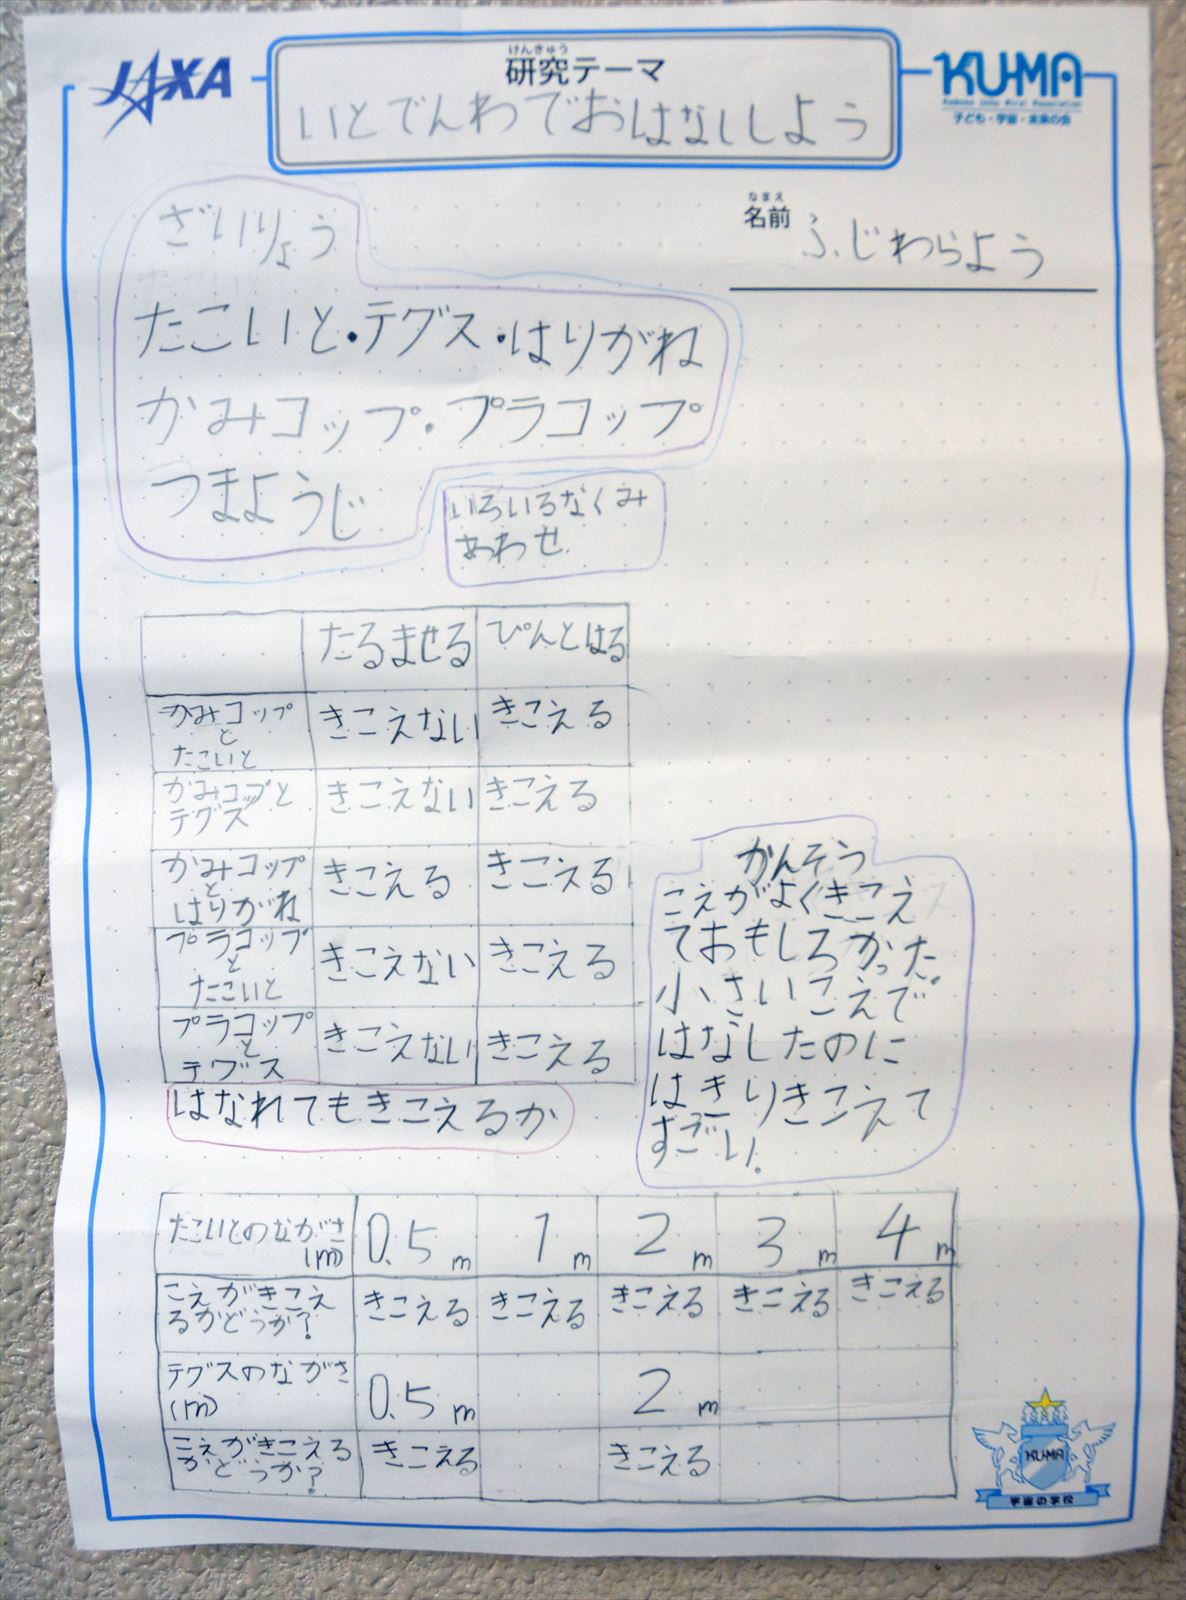 JAXA
けんきゅう
研究テーマ
いとでんわでおはなししよう
KU-MA
子ども・宇宙・未来の会
なまえ
名前 ふじわらよう
ざいりょう
たこいと・テグス・はりがね
かみコップ・プラコップ
つまようじ
いろいろなくみ
あわせ
たるませる ぴんとはる
かみコップ
と
たこいと
きこえない きこえる
かみコップと
テグス
きこえない きこえる
かみコップ
と
はりがね
きこえる きこえる
プラコップ
と
たこいと
きこえない きこえる
プラコップ
と
テグス
きこえない きこえる
かんそう
こえがよくきこえ
ておもしろかった
小さいこえで
はなしたのに
はきりきこえて
すごい。
はなれてもきこえるか
たこいとのながさ
(m)
0.5m 1m 2m 3m 4m
こえがきこえ
るかどうか?
きこえる きこえる きこえる きこえる きこえる
テグスのながさ
(m)
0.5m 2m
こえがきこえる
かどうか?
きこえる きこえる
KU-MA
宇宙の学校